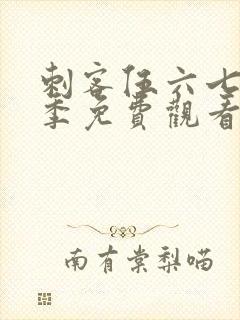 刺客伍六七
季免費觀看
南有棠梨喵